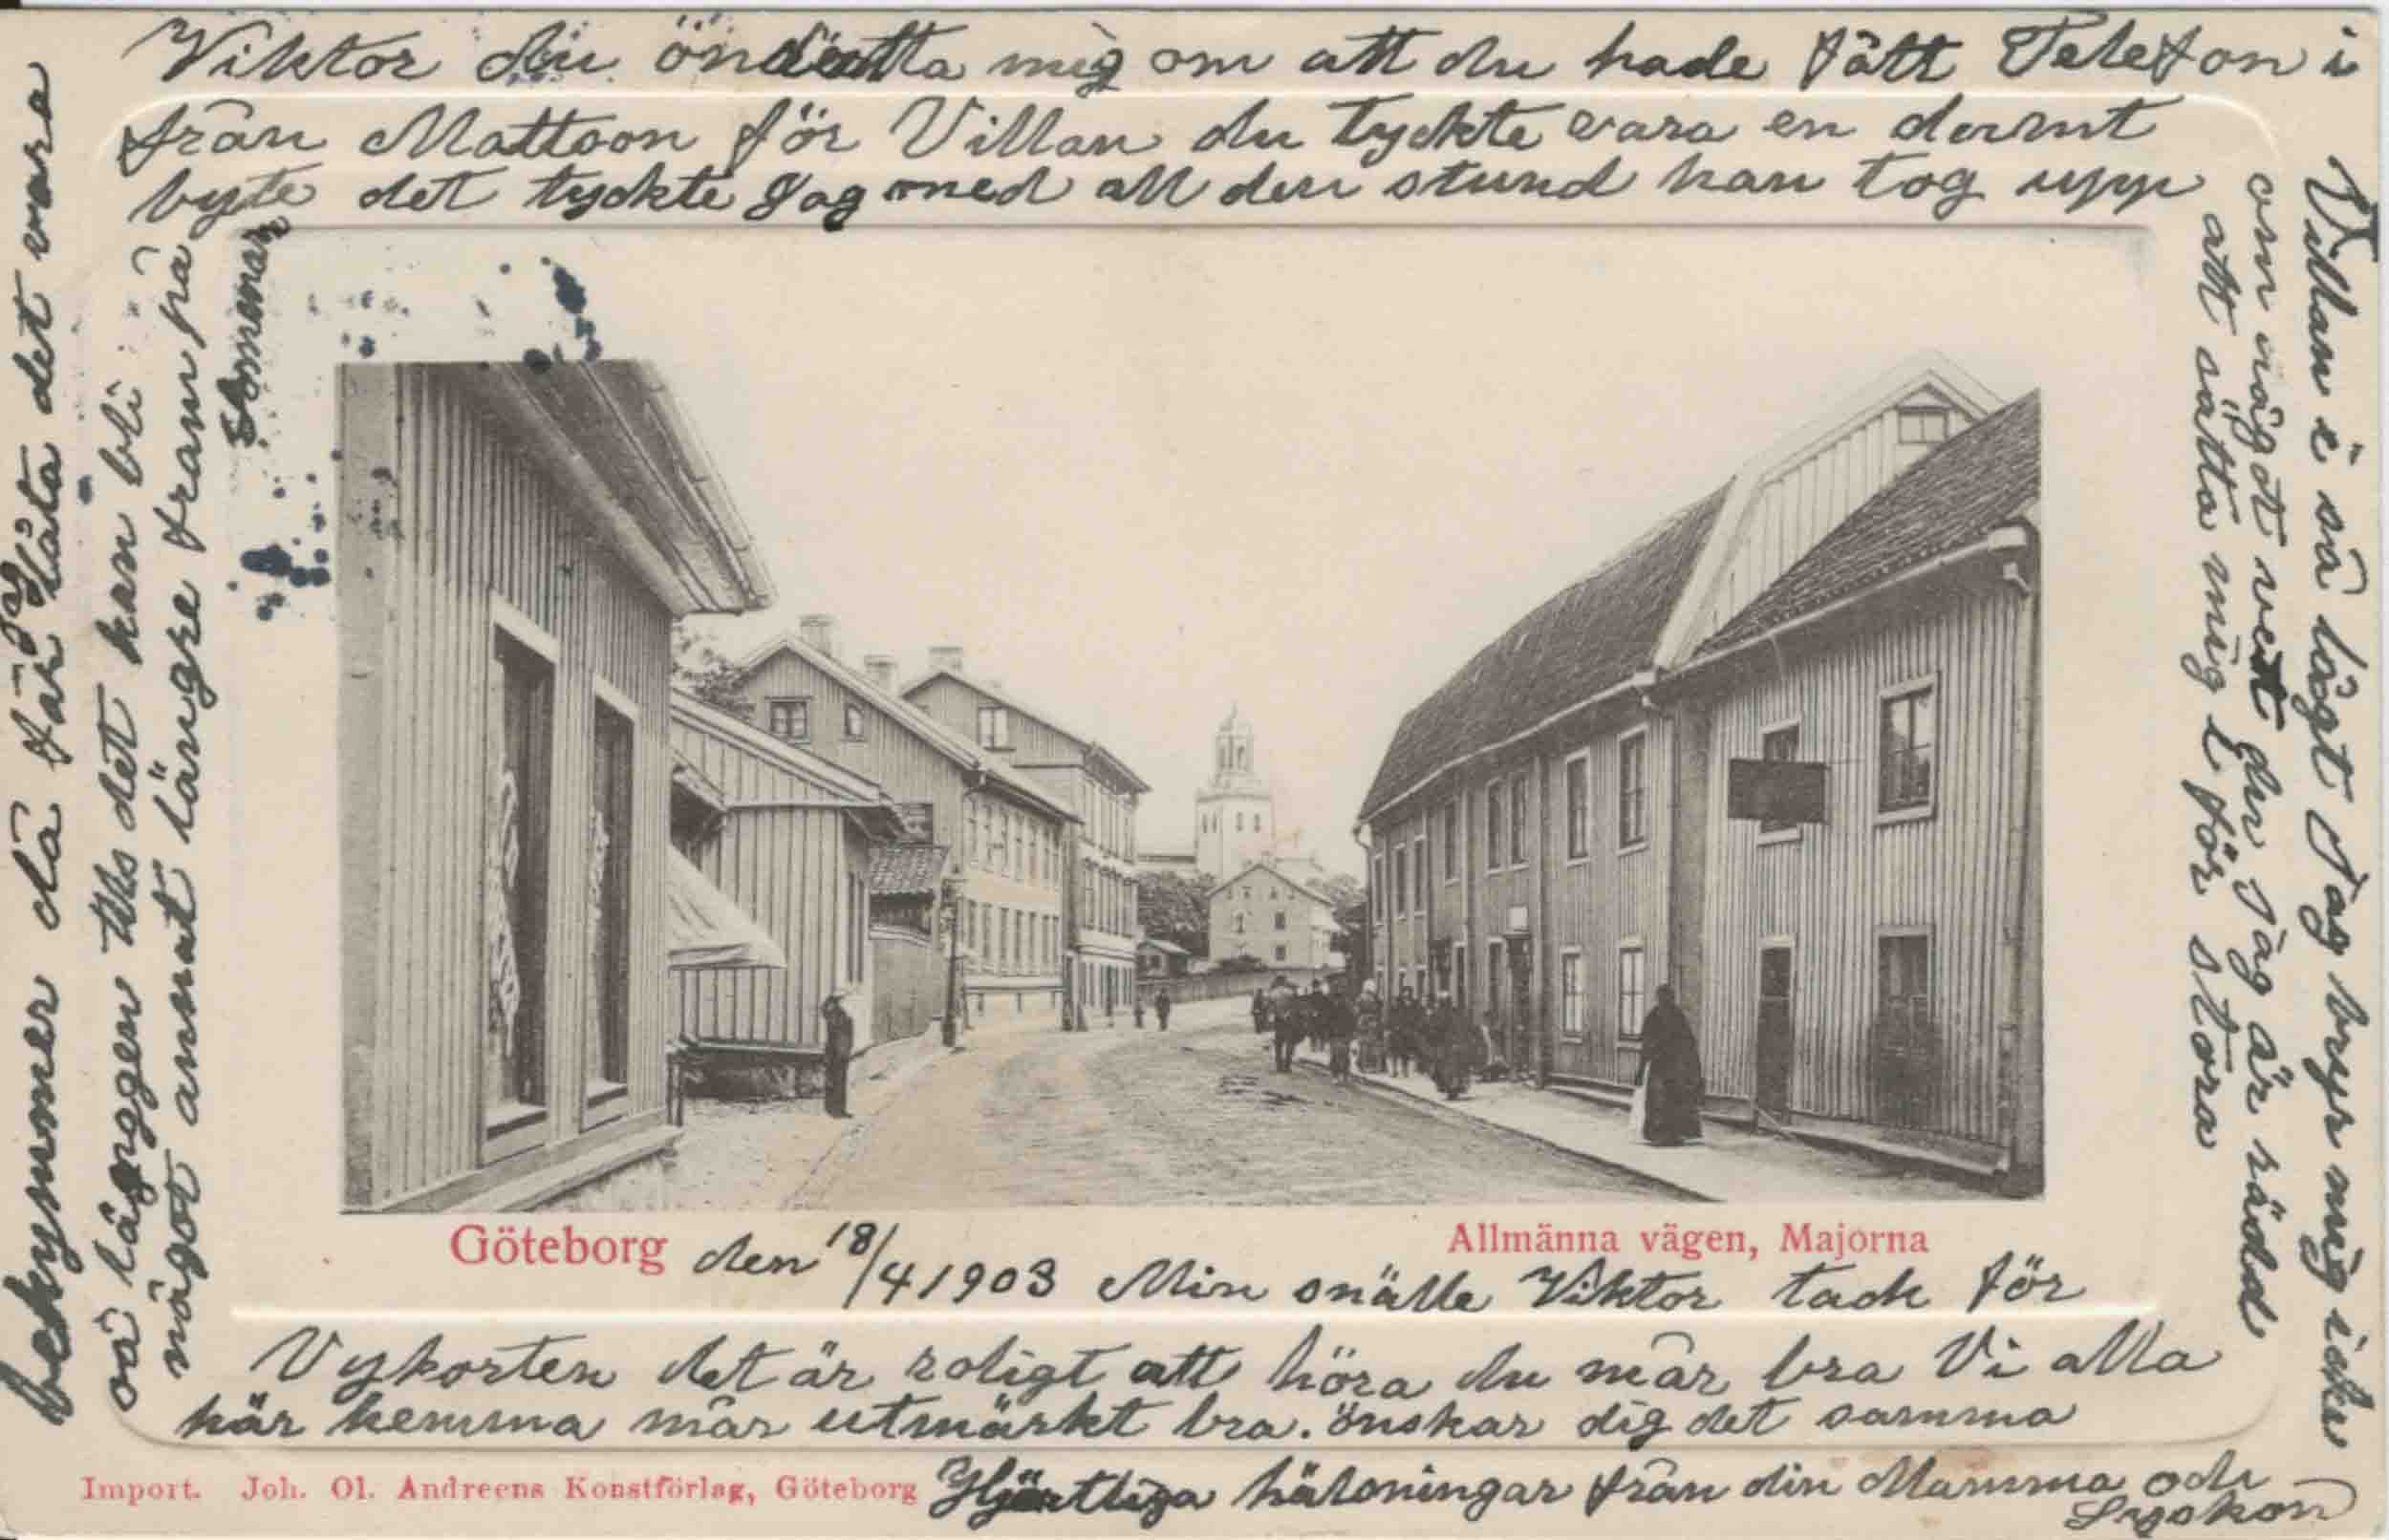 Viktor du öndratta mig om att du hade fått Telefon i
från Mattoon för Villan du tyckte vara en dumt
byte det tyckte Jag med all den stund han tog upp
Villan i så lågt Jag bryr mig icke
om något vidt du Jag är rädd
att sätta mig i för stora
bekymmer då får jag låta det vara
så länngen tils det kan bli
något annat längre fram på
Somenar
Göteborg den 18/4 1903
Allmänna vägen, Majorna
Min snälle Viktor tack för
Vykorten det är roligt att höra du mår bra Vi alla
här hemma mår utmärkt bra. önskar dig det samma
Import. Joh. Ol. Andreens Konstförlag, Göteborg
Hjärtliga hälsningar från din Mamma och
Syskon